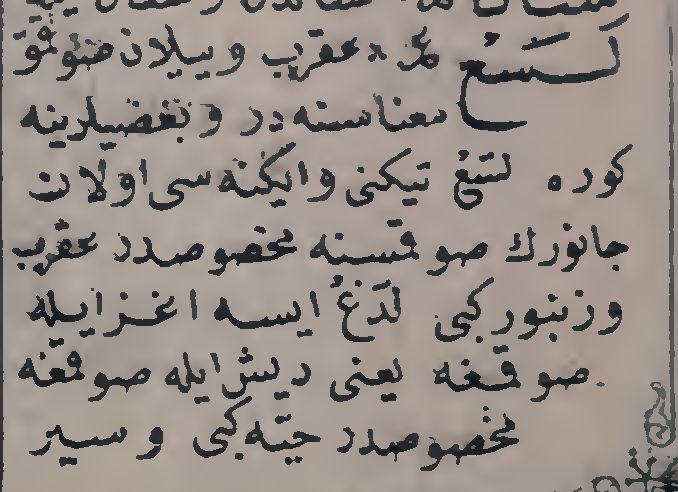 لسع عر عقرب وييلان صوقمق
معناسنه در وتفضيلرينه
كوره لسع تيكنى وايكنه سى اولان
جانورك صوقمسنه مخصوصدر عقرب
وزنبور كبى لدغ ايسه اغز ايله
صوقمغه يعنى ديش ايله صوقمغه
مخصوصدر حيّه كبى وسير